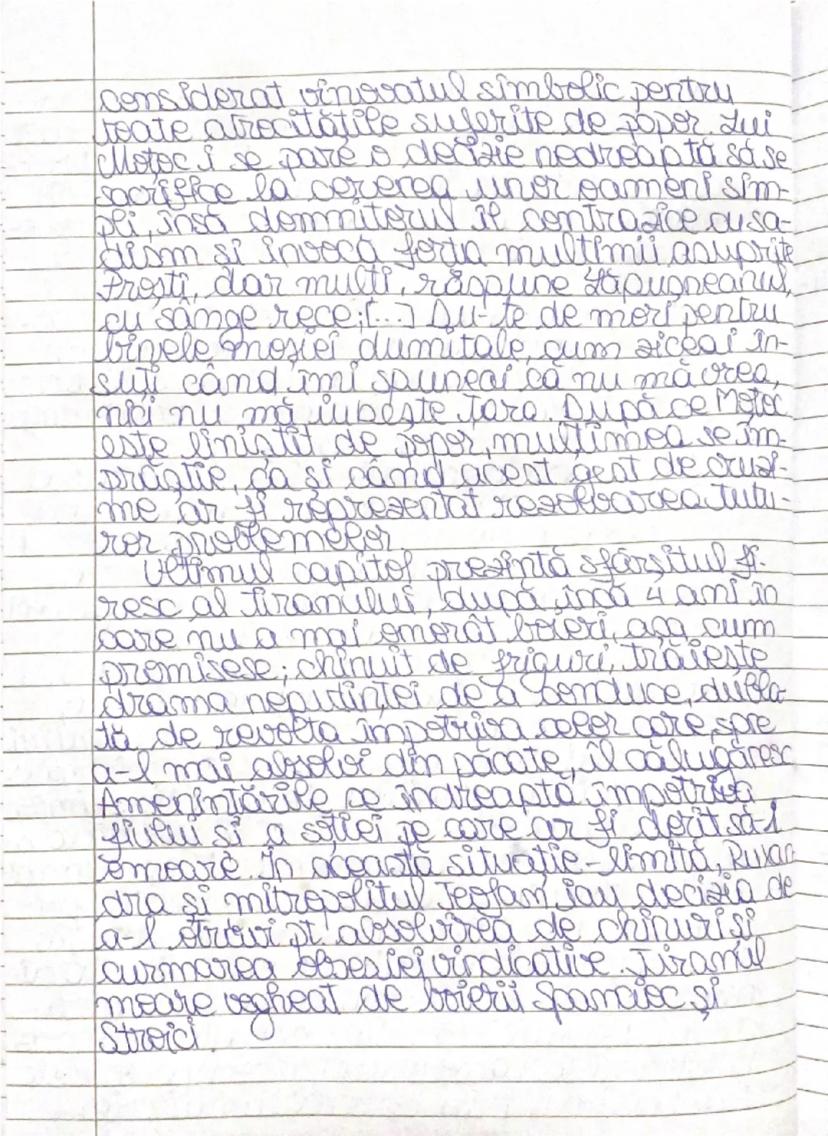 considerat vinovatul simbolic pentru
toate atrocitățile suferite de popor. Lui
Motoc i se pare o decizie nedreaptă să se
sacrifice la cererea unor oameni sim-
pli, însă domnitorul îl contrazice cu sa-
dism si invocă forța multimii asuprite
Proști, dar multi, răspune Lăpușneanul,
cu sânge rece; [...] Du-te de mori pentru
binele moșiei dumitale, cum ziceai în-
suți când îmi spuneai că nu mă vrea,
nici nu mă iubește țara. După ce Moțoc
este liniștit de popor, mulțimea se îm-
prăștie, ca și când acest gest de cruzi-
me ar fi reprezentat rezolvarea tutu-
ror problemelor.
Ultimul capitol prezintă sfârșitul fi-
resc al tiranului, după încă 4 ani în
care nu a mai omorât boieri, așa cum
promisese; chinuit de friguri, trăiește
drama neputinței de a conduce, dubla-
tă de revolta împotriva celor care, spre
a-l mai absolvi din păcate, îl călugăresc
Amenințările se îndreaptă împotriva
fiului și a soției pe care ar fi dorit să-l
omoare. În această situație-limită, Ruxan
dra și mitropolitul Teofan iau decizia de
a-l otrăvi pt. absolvirea de chinuri și
curmarea obsesiei vindicative. Tiranul
moare vegheat de boierii Spancioc și
Stroici.